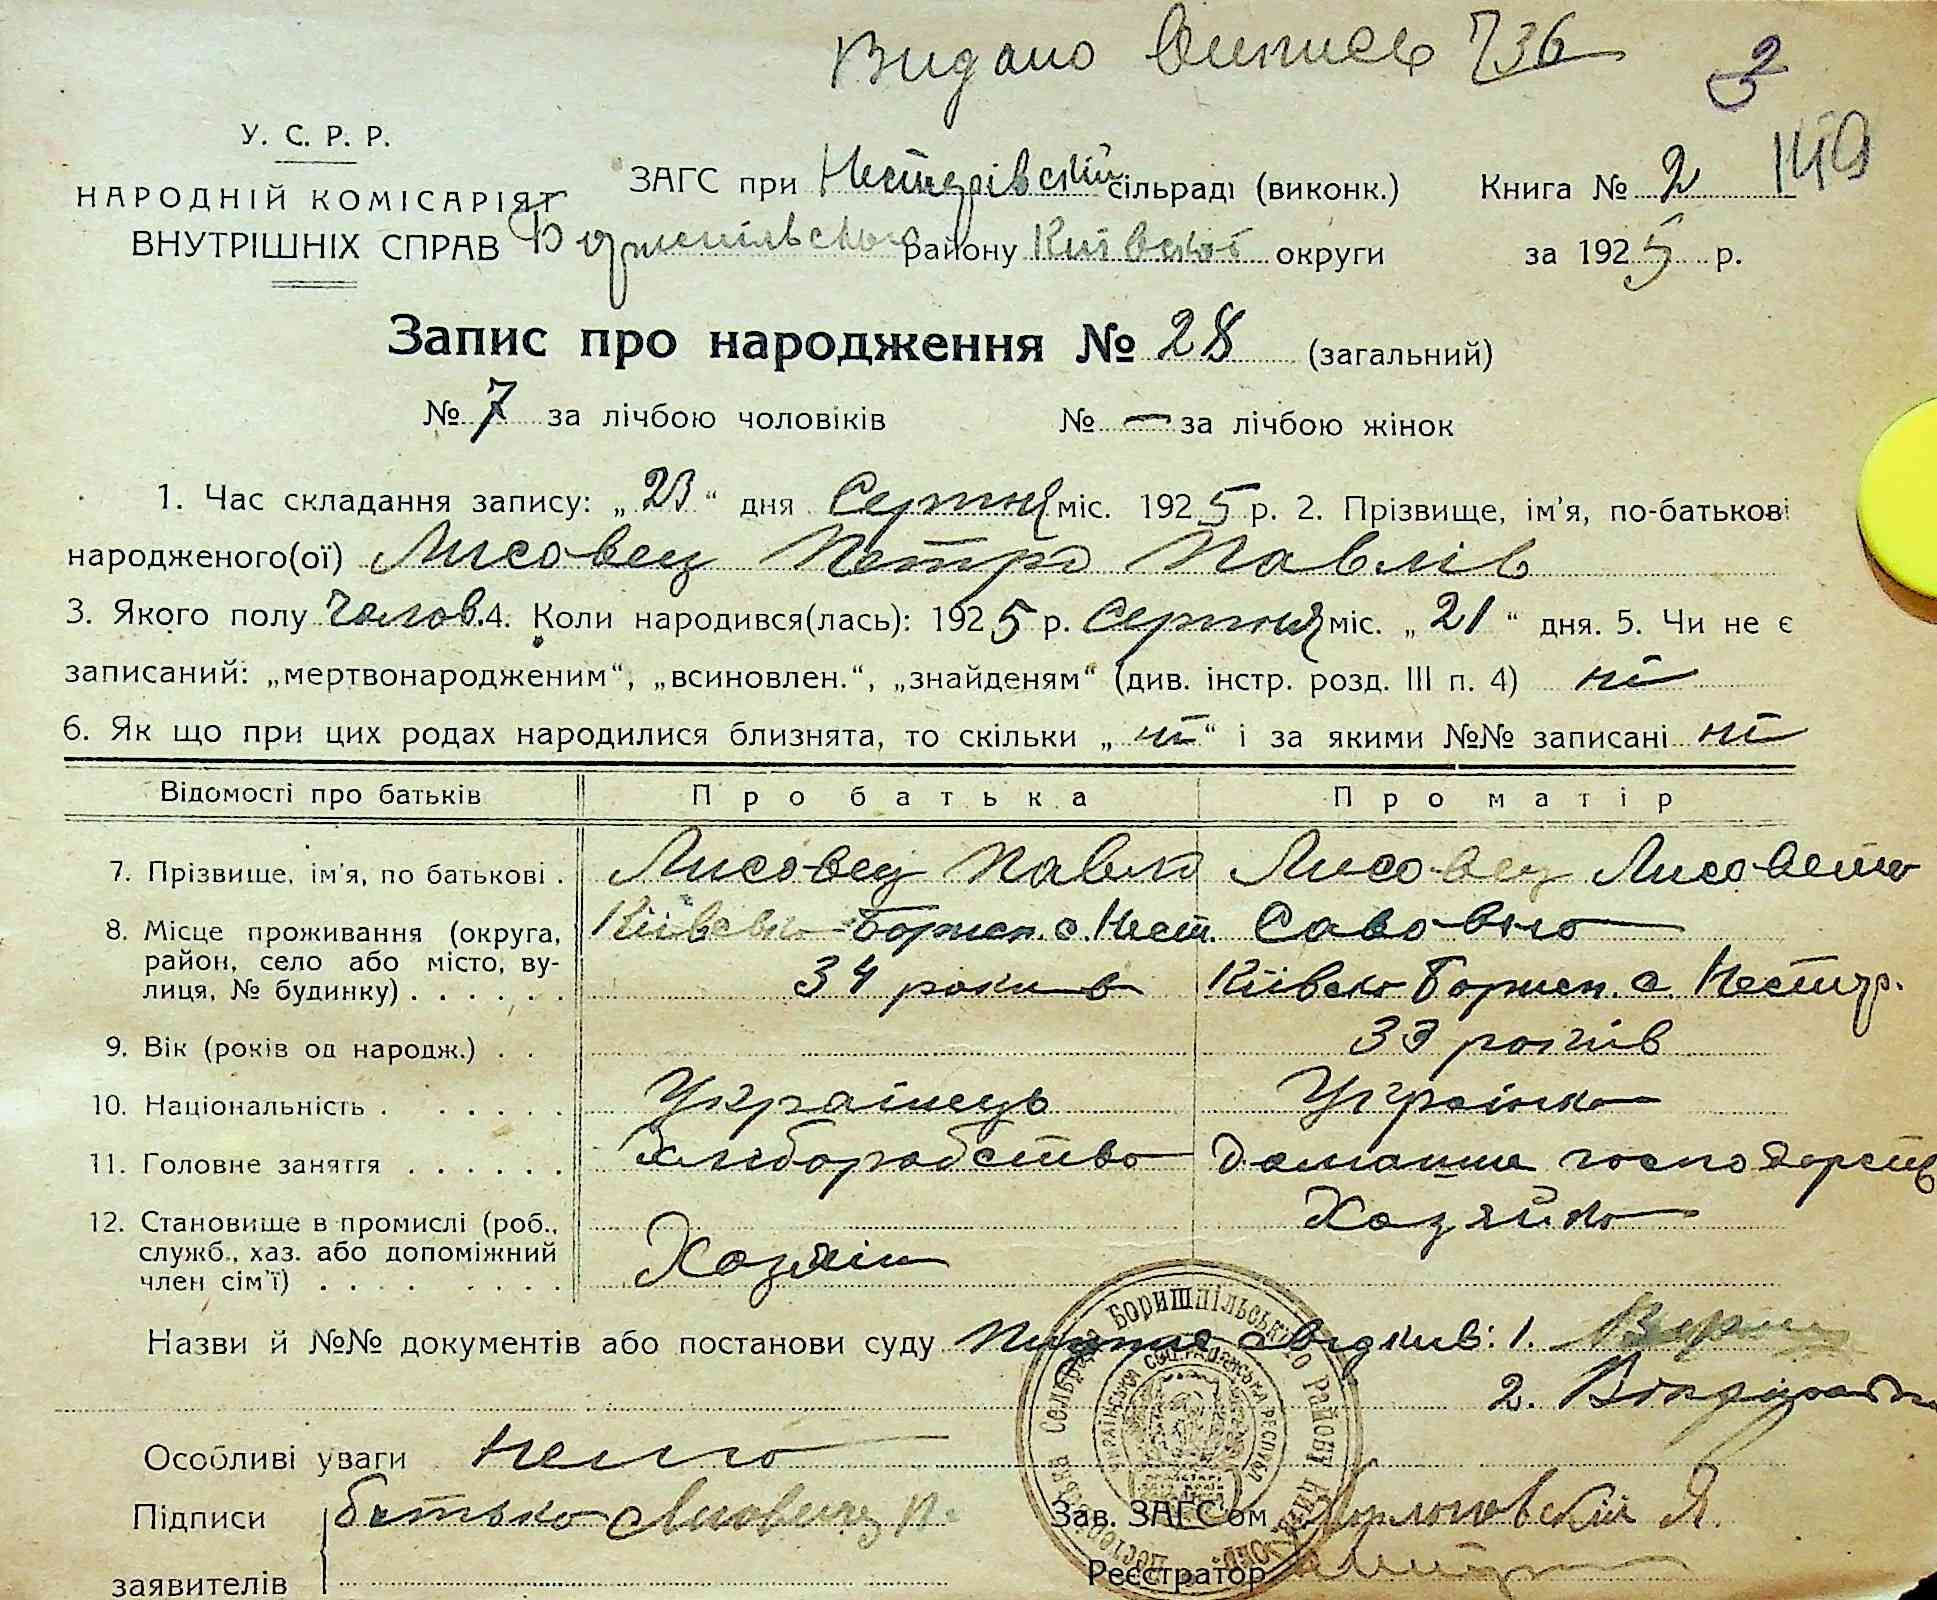 Видано Випись 736
2
149
У. С. Р. Р.
НАРОДНІЙ КОМІСАРІЯТ
ВНУТРІШНІХ СПРАВ
ЗАГС при сільраді (виконк.)
Книга № 2
району Київської округи
за 1925 р.
Запис про народження № 28 (загальний)
№ 7 за лічбою чоловіків № — за лічбою жінок
1. Час складання запису: „23“ дня Серпня міс. 1925 р. 2. Прізвище, ім'я, по-батькові
народженого(ої) Лисовец Петро Павлів
3. Якого полу чолов. 4. Коли народився(лась): 1925 р. Серпня міс. „21“ дня. 5. Чи не є
записаний: „мертвонародженим“, „всиновлен.“, „знайденям“ (див. інстр. розд. III п. 4) ні
6. Як що при цих родах народилися близнята, то скільки „ні“ і за якими №№ записані ні
Відомості про батьків Про батька Про матір
7. Прізвище, ім'я, по батькові . Лисовец Павло Лисовец Лисовета
8. Місце проживання (округа, Київська Борисп. с. Нест. Савовна
район, село або місто, ву-
лиця, № будинку) . . . . . . 34 роки Київська Борисп. с. Нестер.
9. Вік (років од народж.) . . 33 років
10. Національність . . . . . . Українець Українка
11. Головне заняття . . . . . . Хліборобство Домашне господарств
12. Становище в промислі (роб., Хазяйка
служб., хаз. або допоміжний Хазяін
член сім'ї) . . . . . . . .
Назви й №№ документів або постанови суду свідків: 1.
2.
Особливі уваги нема
Підписи батько Лисовец П.
Зав. ЗАГС'ом Я.
заявителів
Реєстратор
Сельрада Боришпільського Району
УКРАЇНСЬКА СОЦ. РАДЯНСЬКА РЕСПУБЛ